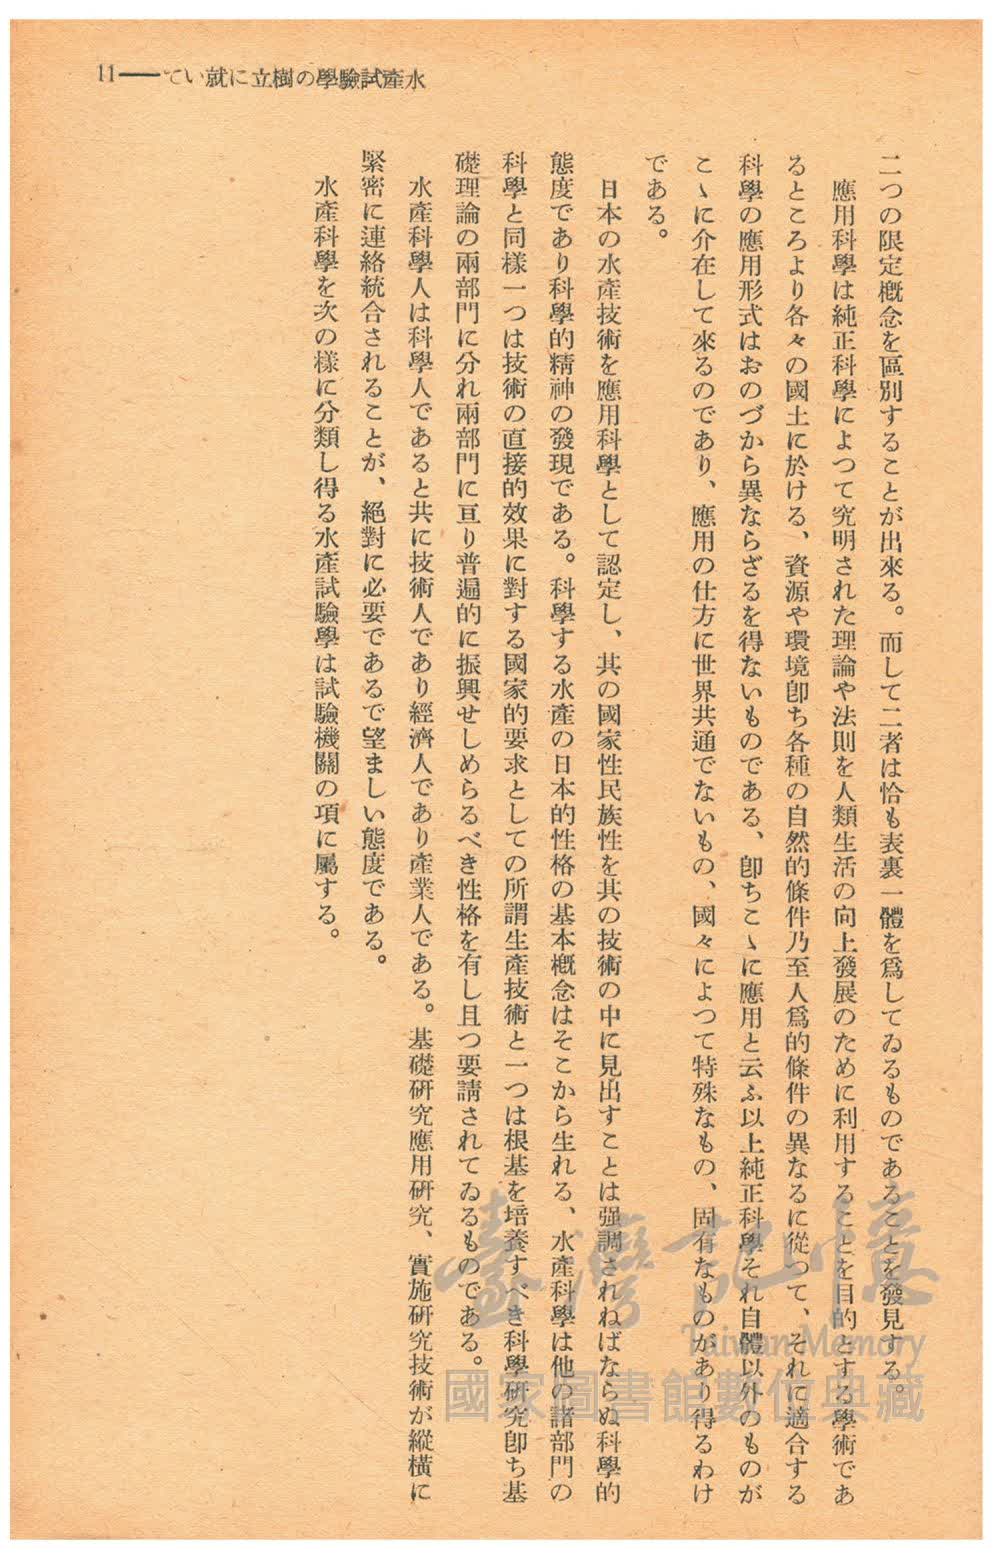 水產試驗學の樹立に就いて━━11
二つの限定槪念を區別することが出來る。而して二者は恰も表裏一體を爲してゐるものであることを發見する。
應用科學は純正科學によつて究明された理論や法則を人類生活の向上發展のために利用することを目的とする學術であ
るところより各々の國土に於ける、資源や環境卽ち各種の自然的條件乃至人爲的條件の異なるに從つて、それに適合する
科學の應用形式はおのづから異ならざるを得ないものである、卽ちこゝに應用と云ふ以上純正科學それ自體以外のものが
こゝに介在して來るのであり、應用の仕方に世界共通でないもの、國々によつて特殊なもの、固有なものがあり得るわけ
である。
日本の水產技術を應用科學として認定し、其の國家性民族性を其の技術の中に見出すことは强調されねばならぬ科學的
態度であり科學的精神の發現である。科學する水產の日本的性格の基本槪念はそこから生れる、水產科學は他の諸部門の
科學と同樣一つは技術の直接的效果に對する國家的要求としての所謂生產技術と一つは根基を培養すべき科學硏究卽ち基
礎理論の兩部門に分れ兩部門に亘り普遍的に振興せしめらるべき性格を有し且つ要請されてゐるものである。
水產科學人は科學人であると共に技術人であり經濟人であり產業人である。基礎硏究應用硏究、實施硏究技術が縱橫に
緊密に連絡統合されることが、絕對に必要であるで望ましい態度である。
水產科學を次の樣に分類し得る水產試驗學は試驗機關の項に屬する。
臺灣記憶
Taiwan Memory
國家圖書館數位典藏